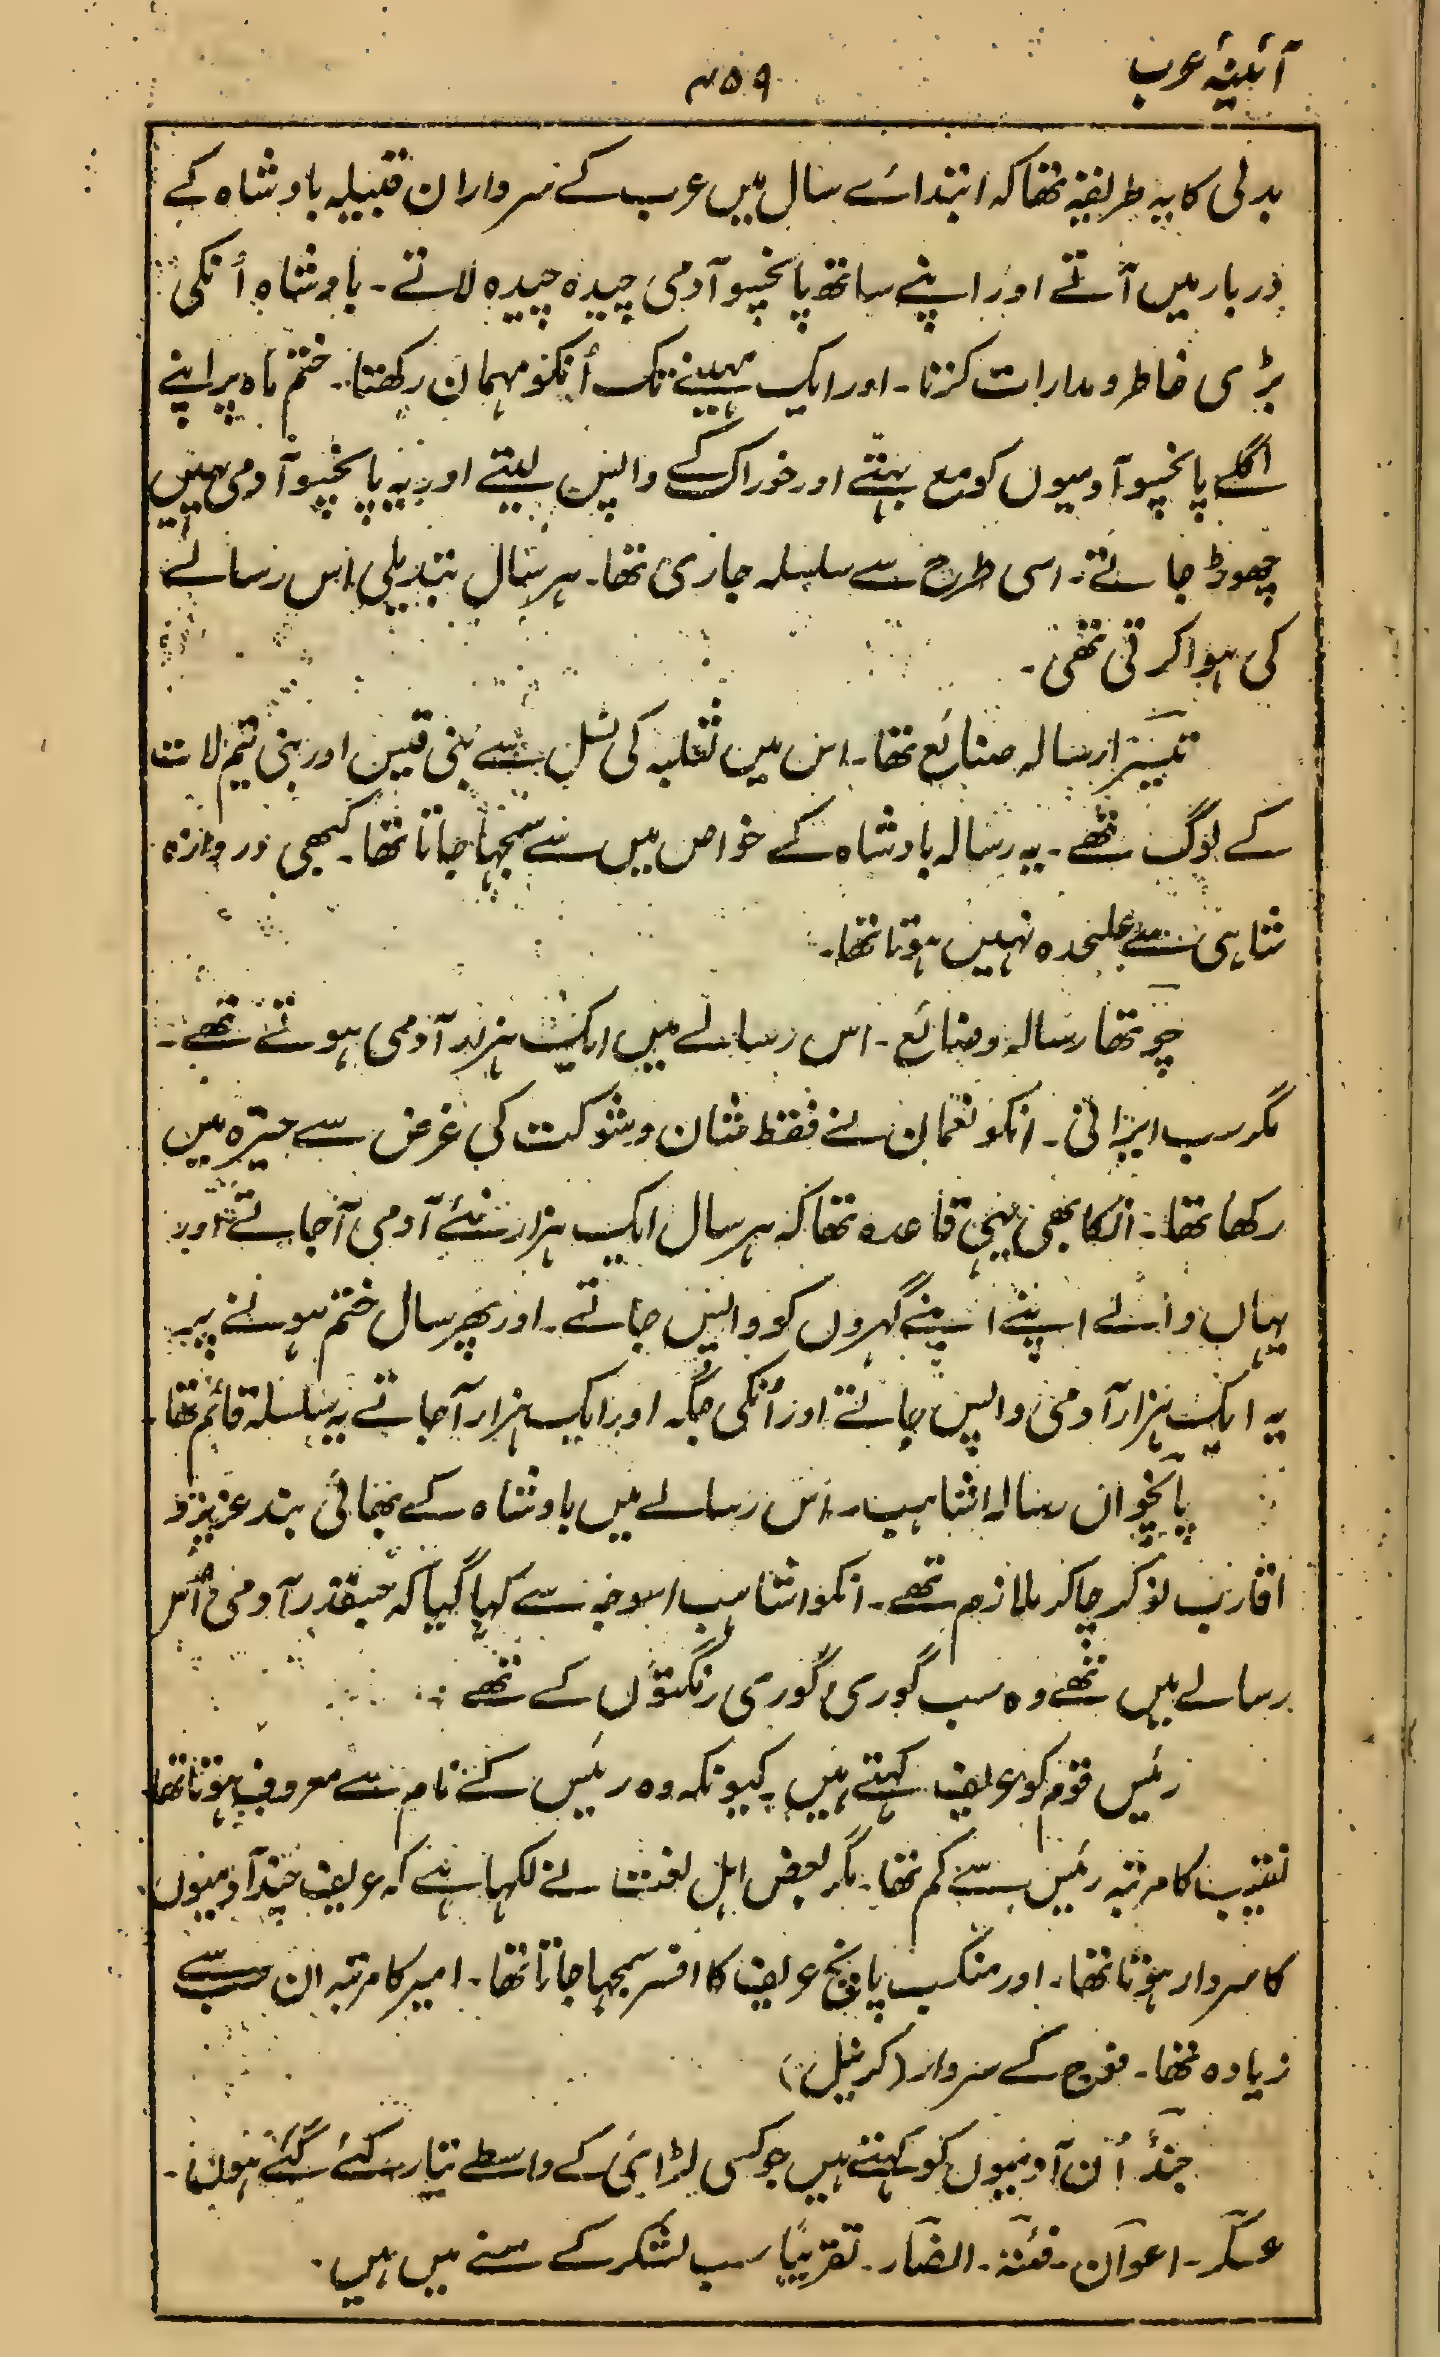 آئینۂ عرب
۴۵۹
بدلی کا یہ طریقہ تھا کہ ابتداے سال میں عرب کے سرداران قبیلہ بادشاہ کے
دربار میں آتے اور اپنے ساتھ پانچسو آدمی چیدہ چیدہ لاتے۔ بادشاہ اُنکی
بڑی خاطر و مدارات کرتا۔ اور ایک مہینے تک اُنکو مہمان رکھتا۔ ختم ماہ پر اپنے
اگلے پانچسو آدمیوں کو مع بہتے اور خوراک کے واپس لیتے اور یہ پانچسو آدمی یہیں
چھوڑ جاتے۔ اسی طرح سے سلسلہ جاری تھا۔ ہر سال تبدیلی اس رسالے
کی ہوا کرتی تھی۔
تیسرا رسالہ صنائع تھا۔ اس میں ثعلبہ کی نسل سے بنی قیس اور بنی تیم لات
کے لوگ تھے۔ یہ رسالہ بادشاہ کے خواص میں سے سمجہا جاتا تھا۔ کبھی دروازہ
شاہی سے علیحدہ نہیں ہوتا تھا۔
چوتھا رسالہ وضائع۔ اس رسالے میں ایک ہزار آدمی ہوتے تھے۔
مگر سب ایرانی۔ انکو نعمان نے فقط شان و شوکت کی غرض سے حیرہ میں
رکھا تھا۔ انکا بھی یہی قاعدہ تھا کہ ہر سال ایک ہزار نئے آدمی آجاتے اور
یہاں والے اپنے اپنے گہروں کو واپس جاتے۔ اور پھر سال ختم ہونے پر
یہ ایک ہزار آدمی واپس جاتے اور اُنکی جگہ اور ایک ہزار آجاتے یہ سلسلہ قائم تھا
پانچواں رسالہ اشاہب۔ اس رسالے میں بادشاہ کے بھائی بند عزیز و
اقارب نوکر چاکر ملازم تھے۔ انکو اشاہب اسوجہ سے کہا گیا کہ جسقدر آدمی اُس
رسالے میں تھے وہ سب گوری گوری رنگتوں کے تھے
رئیس قوم کو عریف کہتے ہیں۔ کیونکہ وہ رئیس کے نام سے معروف ہوتا تھا
نقیب کا مرتبہ رئیس سے کم تھا۔ مگر بعض اہل لغت نے لکہا ہے کہ عریف چند آدمیوں
کا سردار ہوتا تھا۔ اور منکب پانچ عریف کا افسر سمجہا جاتا تھا۔ امیر کا مرتبہ ان سب سے
زیادہ تھا۔ فوج کے سردار (کرنیل)
جند اُن آدمیوں کو کہتے ہیں جو کسی لڑائی کے واسطے تیار کئے گئے ہوں۔
عسکر۔ اعوان۔ فئتہ۔ انصار۔ تقریباً سب لشکر کے معنے میں ہیں۔